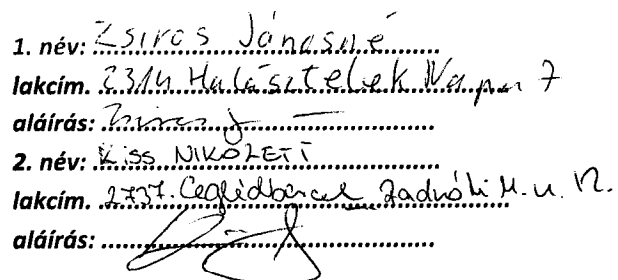 1. név: Zsiros Jánosné
lakcím. 2314 Halásztelek Nap u 7
aláírás: Zsiros J
2. név: Kiss NIKOLETT
lakcím. 2737. Ceglédbercel u. 12.
aláírás: